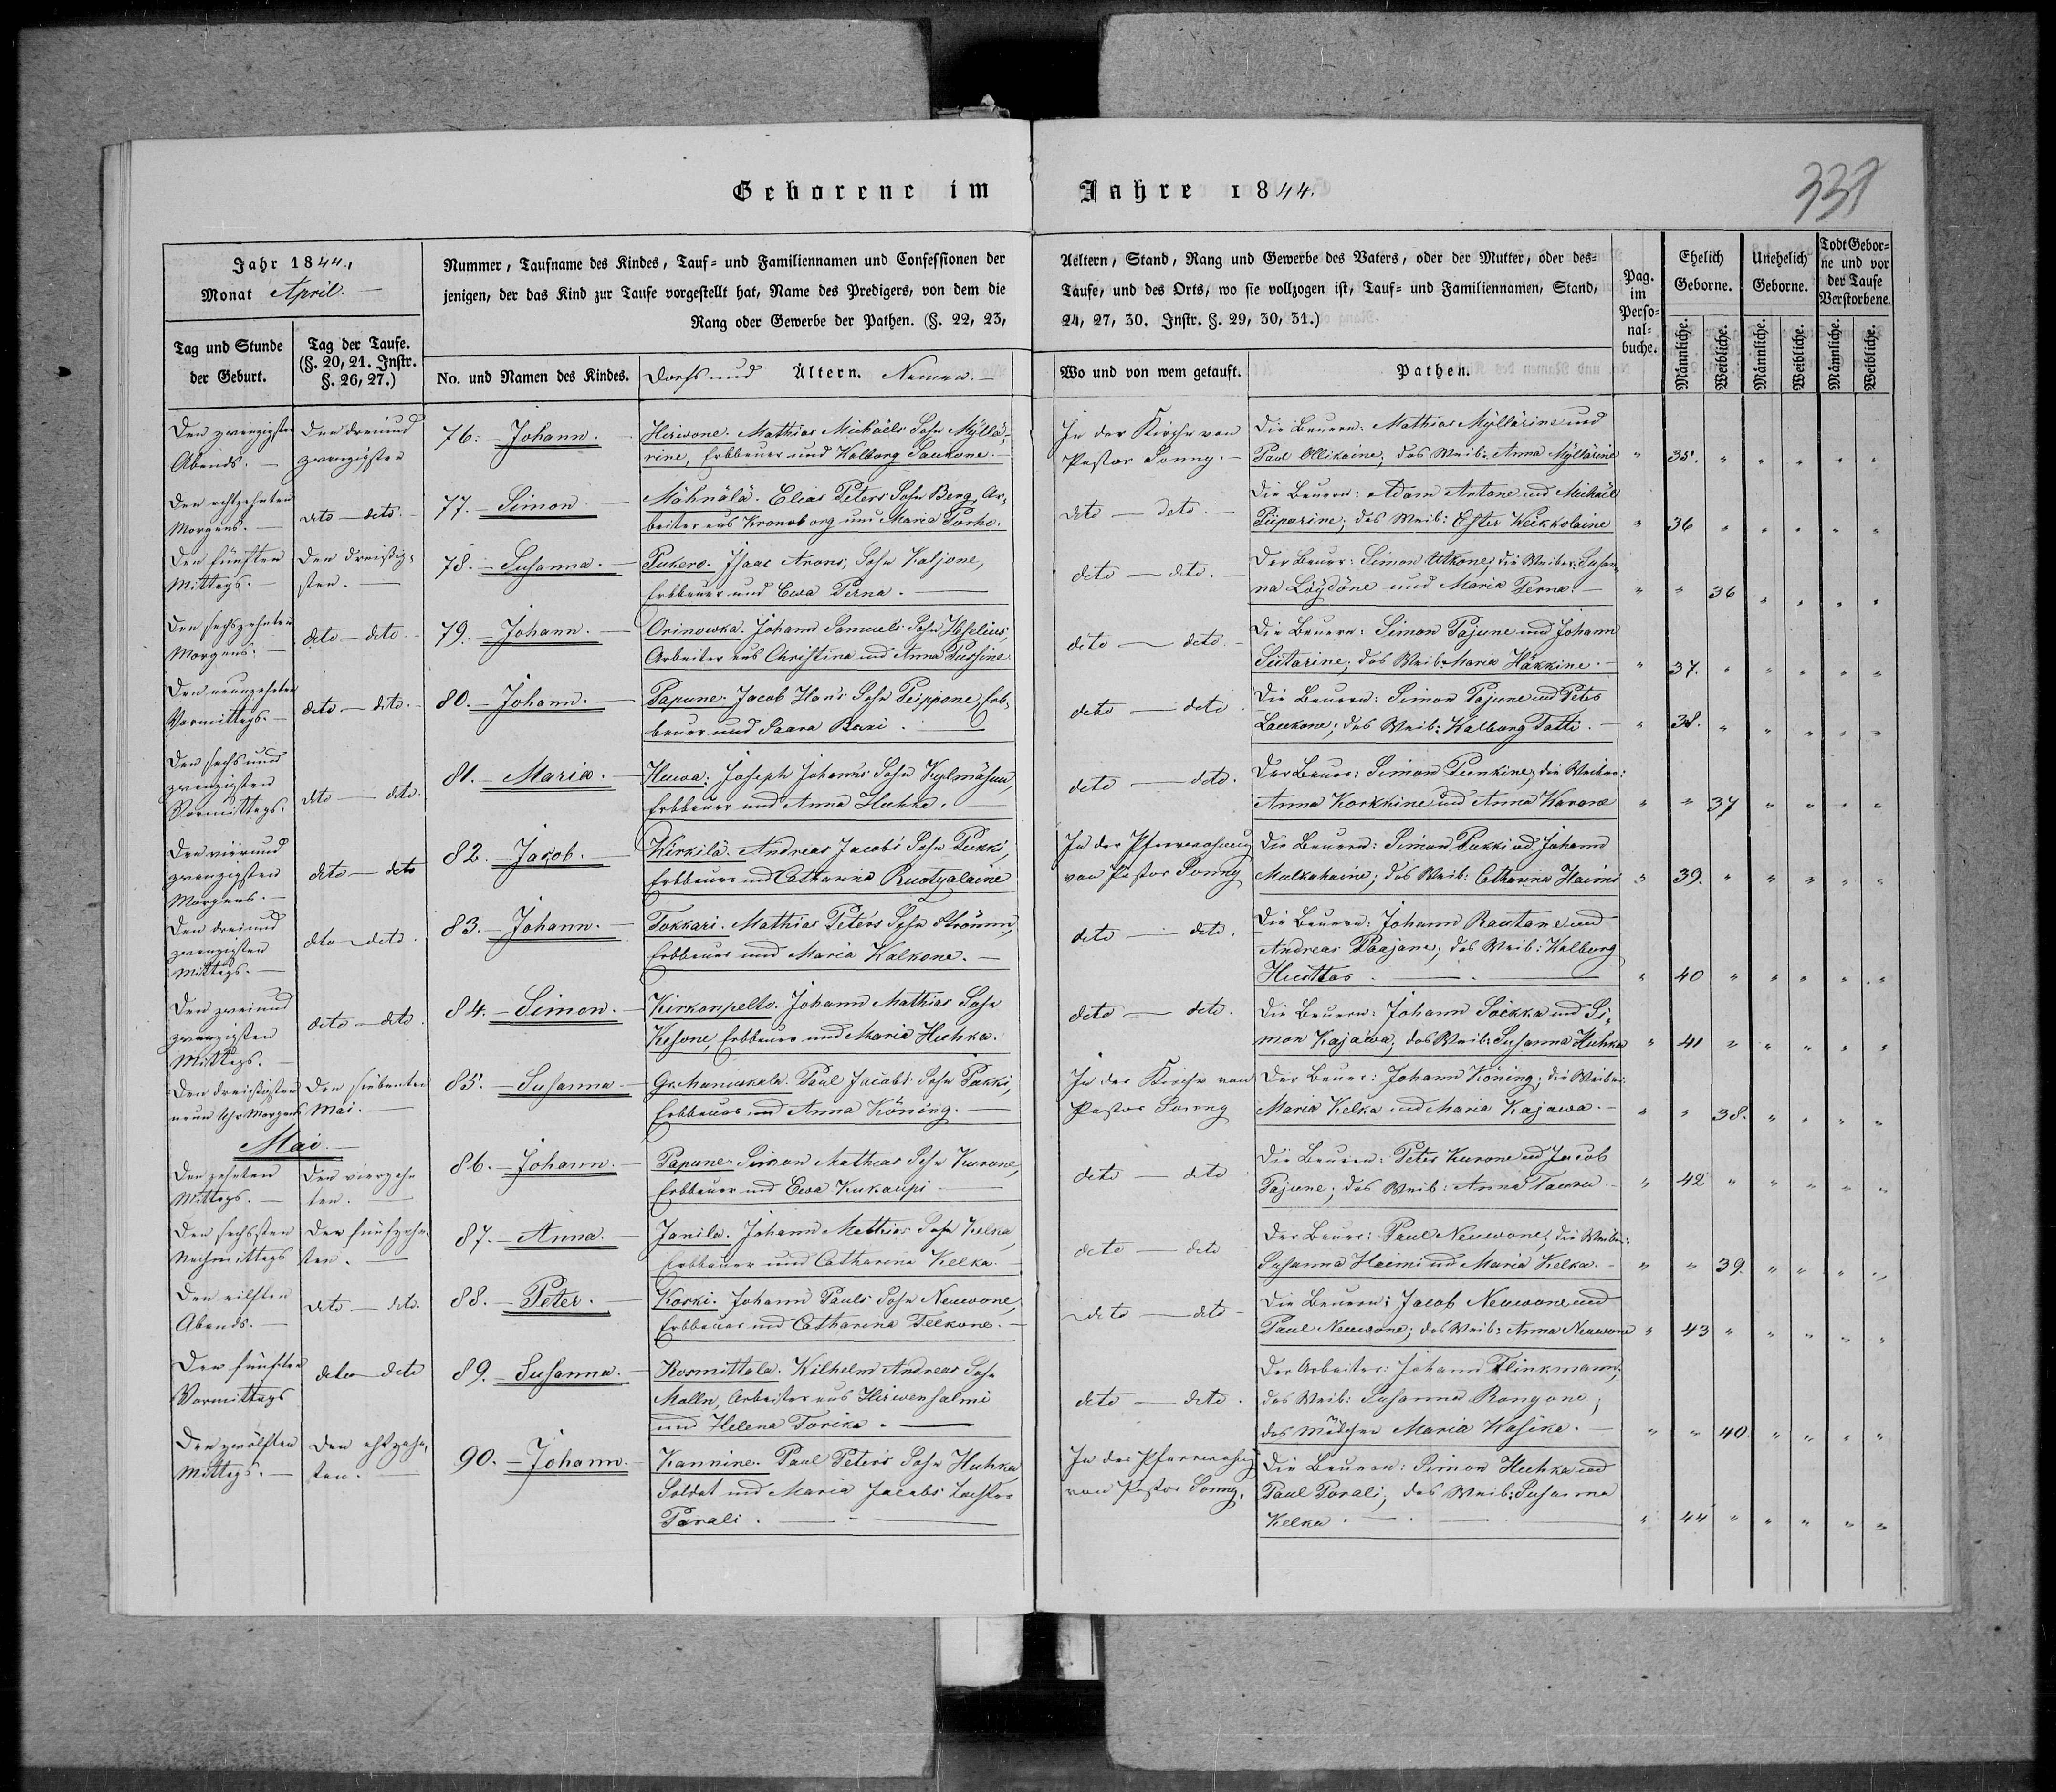 Geborene im Jahre 1844.
331
Jahr 1844.
Monat April.
Nummer, Taufname des Kindes, Tauf- und Familiennamen und Confessionen der Aeltern, Stand, Rang und Gewerbe des Vaters, oder der Mutter, oder des-
jenigen, der das Kind zur Taufe vorgestellt hat, Name des Predigers, von dem die Taufe, und des Orts, wo sie vollzogen ist, Tauf- und Familiennamen, Stand,
Rang oder Gewerbe der Pathen. (§. 22, 23, 24, 27, 30. Instr. §. 29, 30, 31.)
Pag. im Perso-nal-buche.
Ehelich Geborne.
Unehelich Geborne.
Todt Gebor-ne und vor der Taufe Verstorbene.
Männliche. Weibliche. Männliche. Weibliche. Männliche. Weibliche.
Tag und Stunde der Geburt.
Tag der Taufe. (§. 20, 21. Instr. §. 26, 27.)
No. und Namen des Kindes.
Dorfs und Ältern. Namen.
Wo und von wem getauft.
Pathen.
Den zwanzigsten Abends. Den dreiund zwanzigsten
76. Johann.
Hirwone. Mathias Michaels Sohn Myllä-
rine, Erbbauer und Walborg Saukone.
In der Kirche von
Pastor Sonny.
Die Bauern: Mathias Myllärine und
Paul Ollikaine; das Weib: Anna Myllärine " 35. " " " " "
Den achtzehnten Morgens. deto deto
77. Simon
Elias Peters Sohn Berg, Ar-
beiter aus Kronoborg und Maria Torho.
deto deto.
Die Bauern: Adam Antone und Michael
Piiparine; das Weib: Ester Keikkolaine " 36 " " " " "
Den fünften Mittags. Den dreißig-sten.
78. Susanna.
Pukero. Isaac Arons Sohn Valjone,
Erbbauer und Ewa Perna.
deto deto.
Der Bauer: Simon Utkone; die Weiber: Susan-
na Löydöne und Maria Perna. " " 36 " " " "
Den sechszehnten Morgens. deto deto.
79. Johann.
Orinowka. Johann Samuels Sohn Hoselius,
Arbeiter aus Christina und Anna Pussine.
deto deto.
Die Bauern: Simon Pajune und Johann
Siitarine; das Weib: Maria Häkkine. " 37. " " " " "
Den neunzehnten Vormittags. deto deto.
80. Johann.
Papune. Jacob Hans Sohn Peippone, Erb-
bauer und Saara Raxi.
deto deto
Die Bauern: Simon Pajune und Peter
Laukone; das Weib: Walborg Tatti. " 38. " " " " "
Den sechsund zwanzigsten Vormittags. deto deto.
81. Maria.
Huwa: Joseph Johanns Sohn Kylmäsuu,
Erbbauer und Anna Huhka.
deto deto.
Der Bauer: Simon Punkine; die Weiber:
Anna Korkkine und Anna Karone " " 37 " " " "
Den vierund zwanzigsten Morgens. deto deto
82. Jacob.
Kirkila. Andreas Jacobs Sohn Pukki,
Erbbauer und Catharina Ruotzalaine
In der Pfarrwohnung
von Pastor Sonny
Die Bauern: Simon Pukki und Johann
Mulkahaine; das Weib: Catharina Haimi " 39. " " " " "
Den dreiund zwanzigsten Mittags. deto deto.
83. Johann.
Tokkari. Mathias Peters Sohn Strömm,
Erbbauer und Maria Kalkone.
deto deto.
Die Bauern: Johann Rautane und
Andreas Paajane; das Weib: Walborg
Huuttas. " 40 " " " " "
Den zweiund zwanzigsten Mittags. deto deto.
84. Simon.
Kirkonpelto. Johann Mathias Sohn
Kesone, Erbbauer und Maria Huhka.
deto deto.
Die Bauern: Johann Soikka und Si-
mon Kajawa; das Weib: Susanna Huhka " 41 " " " " "
Den dreißigsten neun Uhr Morgens Den siebenten Mai.
85. Susanna
Gr. Manuskala. Paul Jacobs Sohn Pukki,
Erbbauer und Anna Köning.
In der Kirche von
Pastor Sonny
Der Bauer: Johann Köning; die Weiber:
Maria Kelka und Maria Kajawa. " " 38. " " " "
Mai.
Den zehnten Mittags. Den vierzehn-ten.
86. Johann.
Papune. Simon Mathias Sohn Kurone,
Erbbauer und Ewa Kukaupi
deto deto
Die Bauern: Peter Kurone und Jacob
Pajune; das Weib: Anna Tauru. " 42 " " " " "
Den sechsten Nachmittags Den fünfzehn-ten.
87. Anna.
Janila. Johann Mathias Sohn Kelka,
Erbbauer und Catharina Kelka.
deto deto
Der Bauer: Paul Neuwone; die Weiber:
Susanna Haimi und Maria Kelka. " " 39. " " " "
Den eilften Abends. deto deto.
88. Peter.
Koski. Johann Pauls Sohn Neuwone,
Erbbauer und Catharina Pelkone.
deto deto
Die Bauern: Jacob Neuwone und
Paul Neuwone; das Weib: Anna Neuwone " 43 " " " " "
Den fünften Vormittags deto deto
89. Susanna.
Rosmittala. Wilhelm Andreas Sohn
Molln, Arbeiter aus Hirwensalmi
und Helena Torika.
deto deto.
Der Arbeiter: Johann Flinkmann;
das Weib: Susanna Rongone;
das Mädchen Maria Wasika. " " 40. " " " "
Den zwölften Mittags. Den achtzehn-ten.
90. Johann.
Kannine. Paul Peters Sohn Huhka
Soldat und Maria Jacobs Tochter
Porali.
In der Pfarrwohng
von Pastor Sonny.
Die Bauern: Simon Huhka und
Paul Porali; das Weib: Susanna
Kelka. " 44 " " " " "